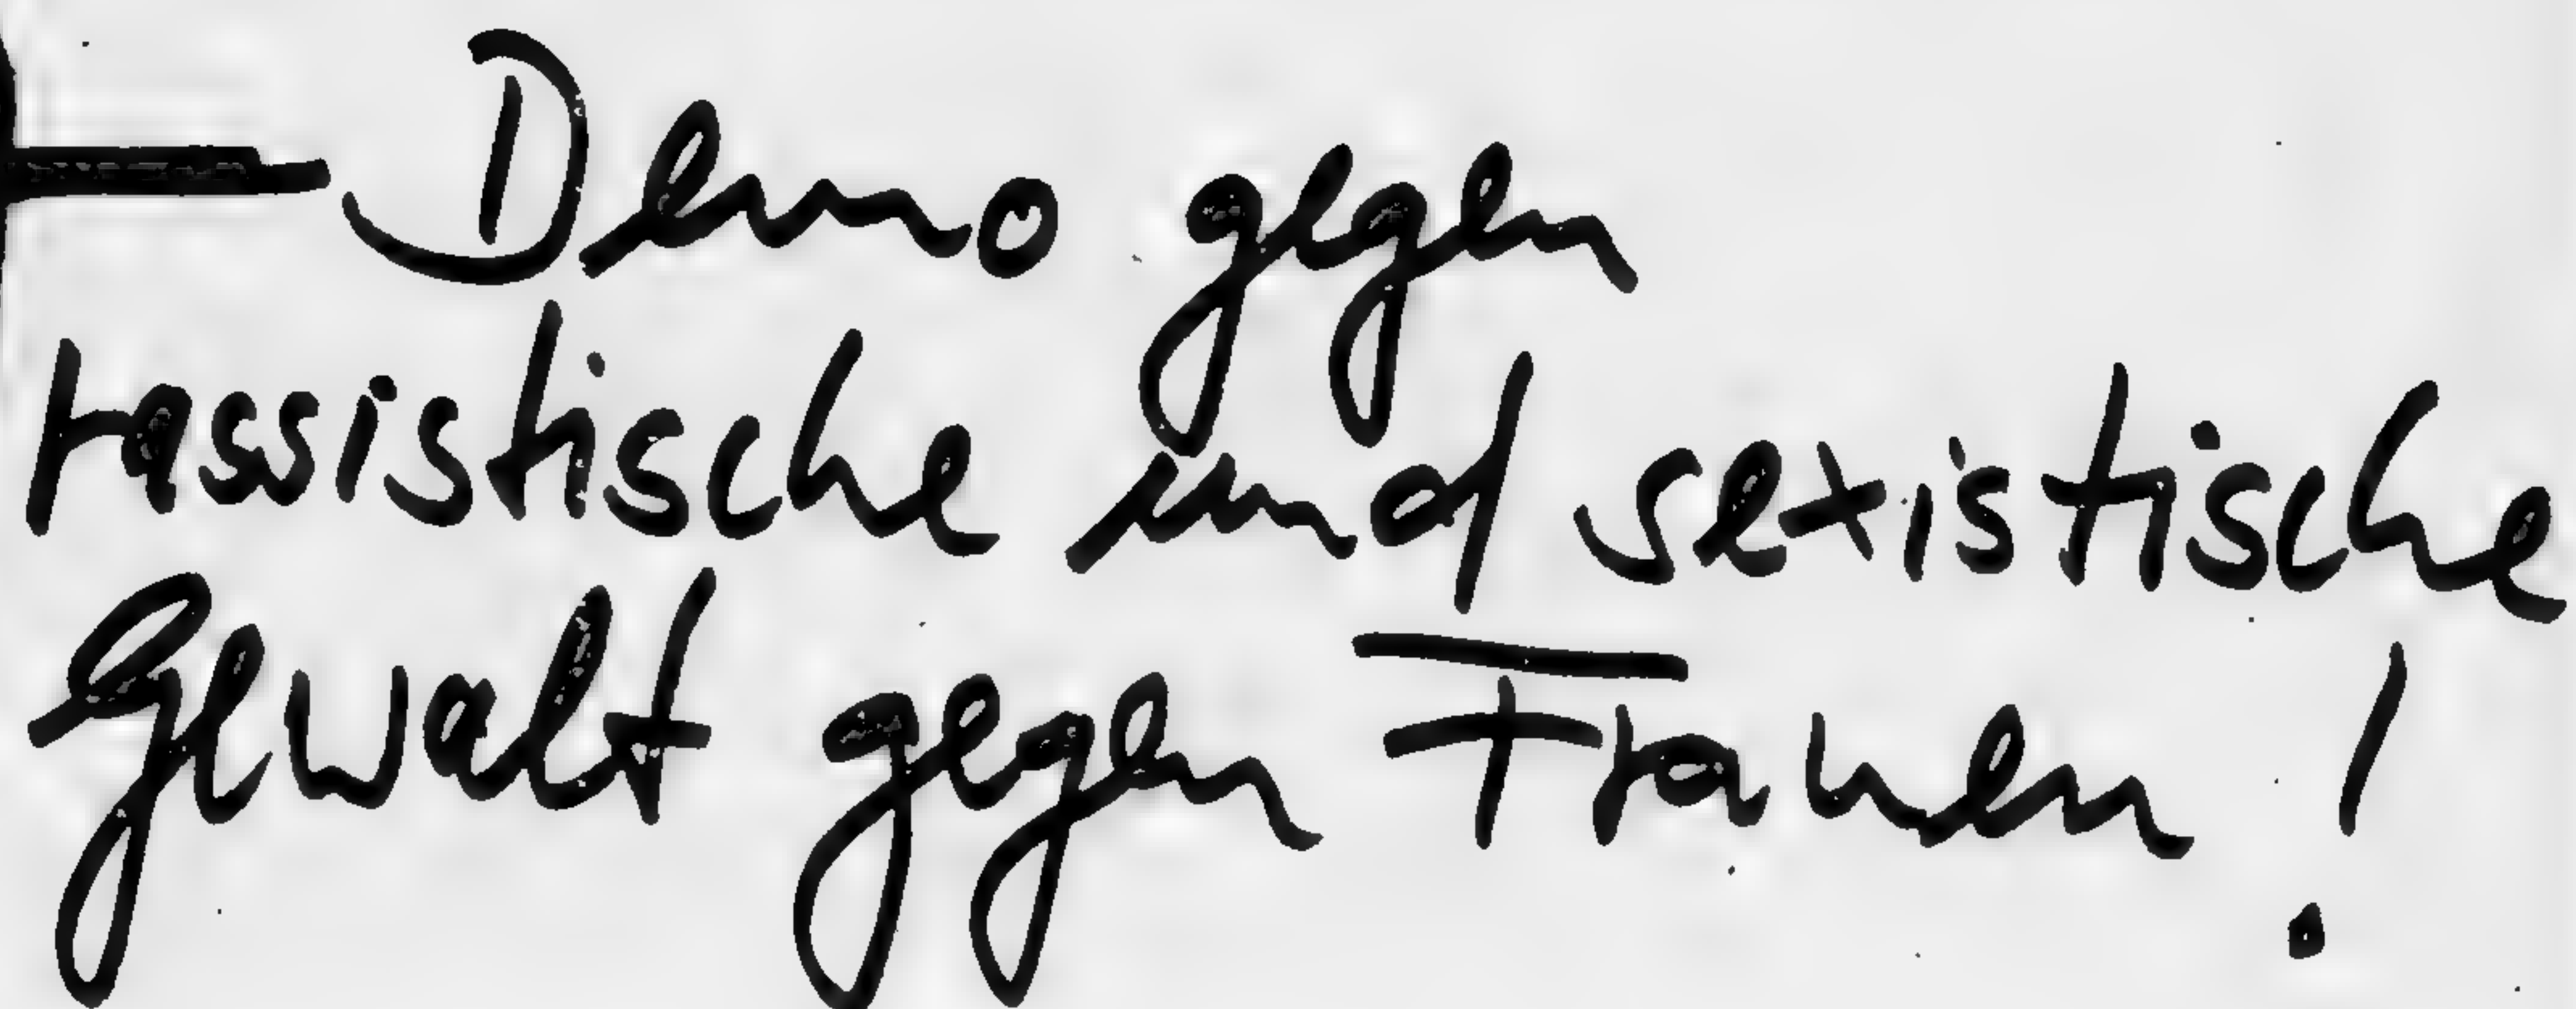 Demo gegen
rassistische und sexistische
Gewalt gegen Frauen!